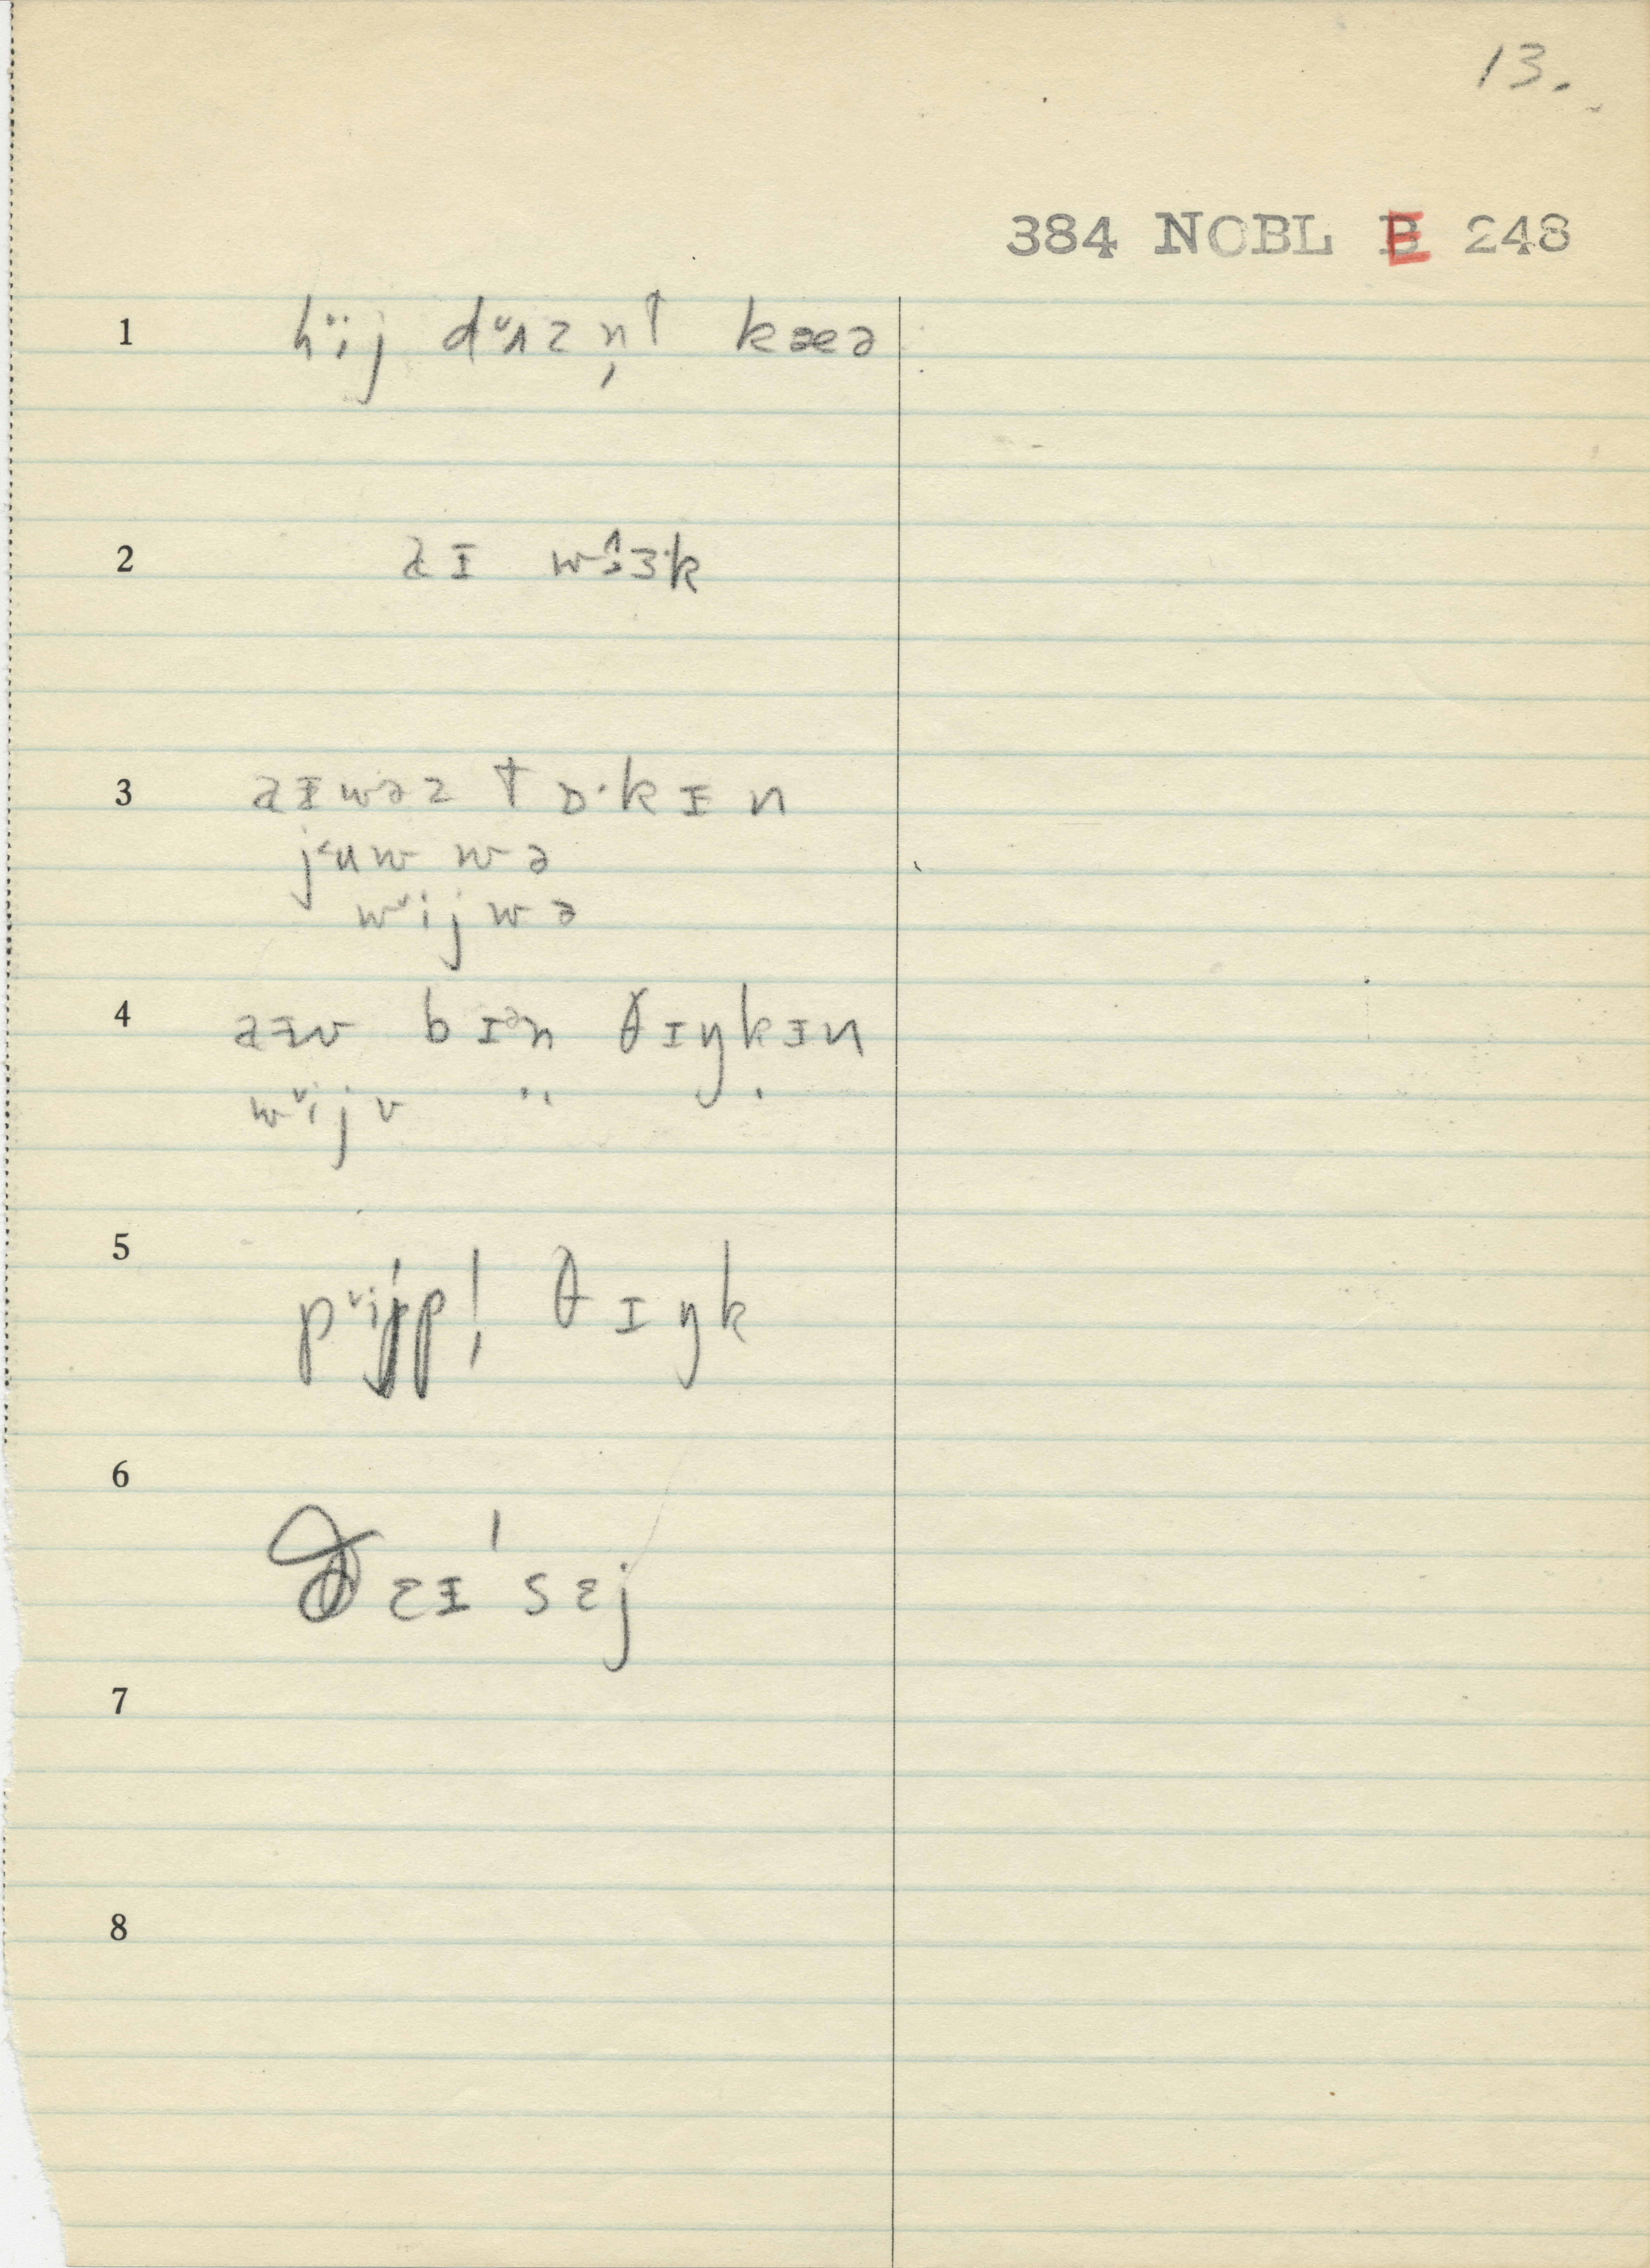 13.
384 NOBL E 248
1 hᵛij dᵛʌzn̩t kæə
2 aɪ wɜ˞k
3 aɪwəz tɒ·kɪn
jᵘuw wə
wᵛij wə
4 aɪv bɪᵊn θɪŋkɪn
wᵛij v " "
5 pᵛijpl̩ θɪŋk
6 ðɛɪ ' sɛj
7
8